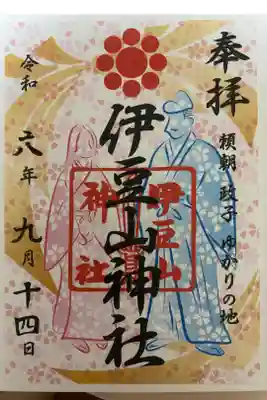 奉拝
頼朝 政子 ゆかりの地
伊豆山神社
伊豆山
神社
令和
六年
九月
十四日